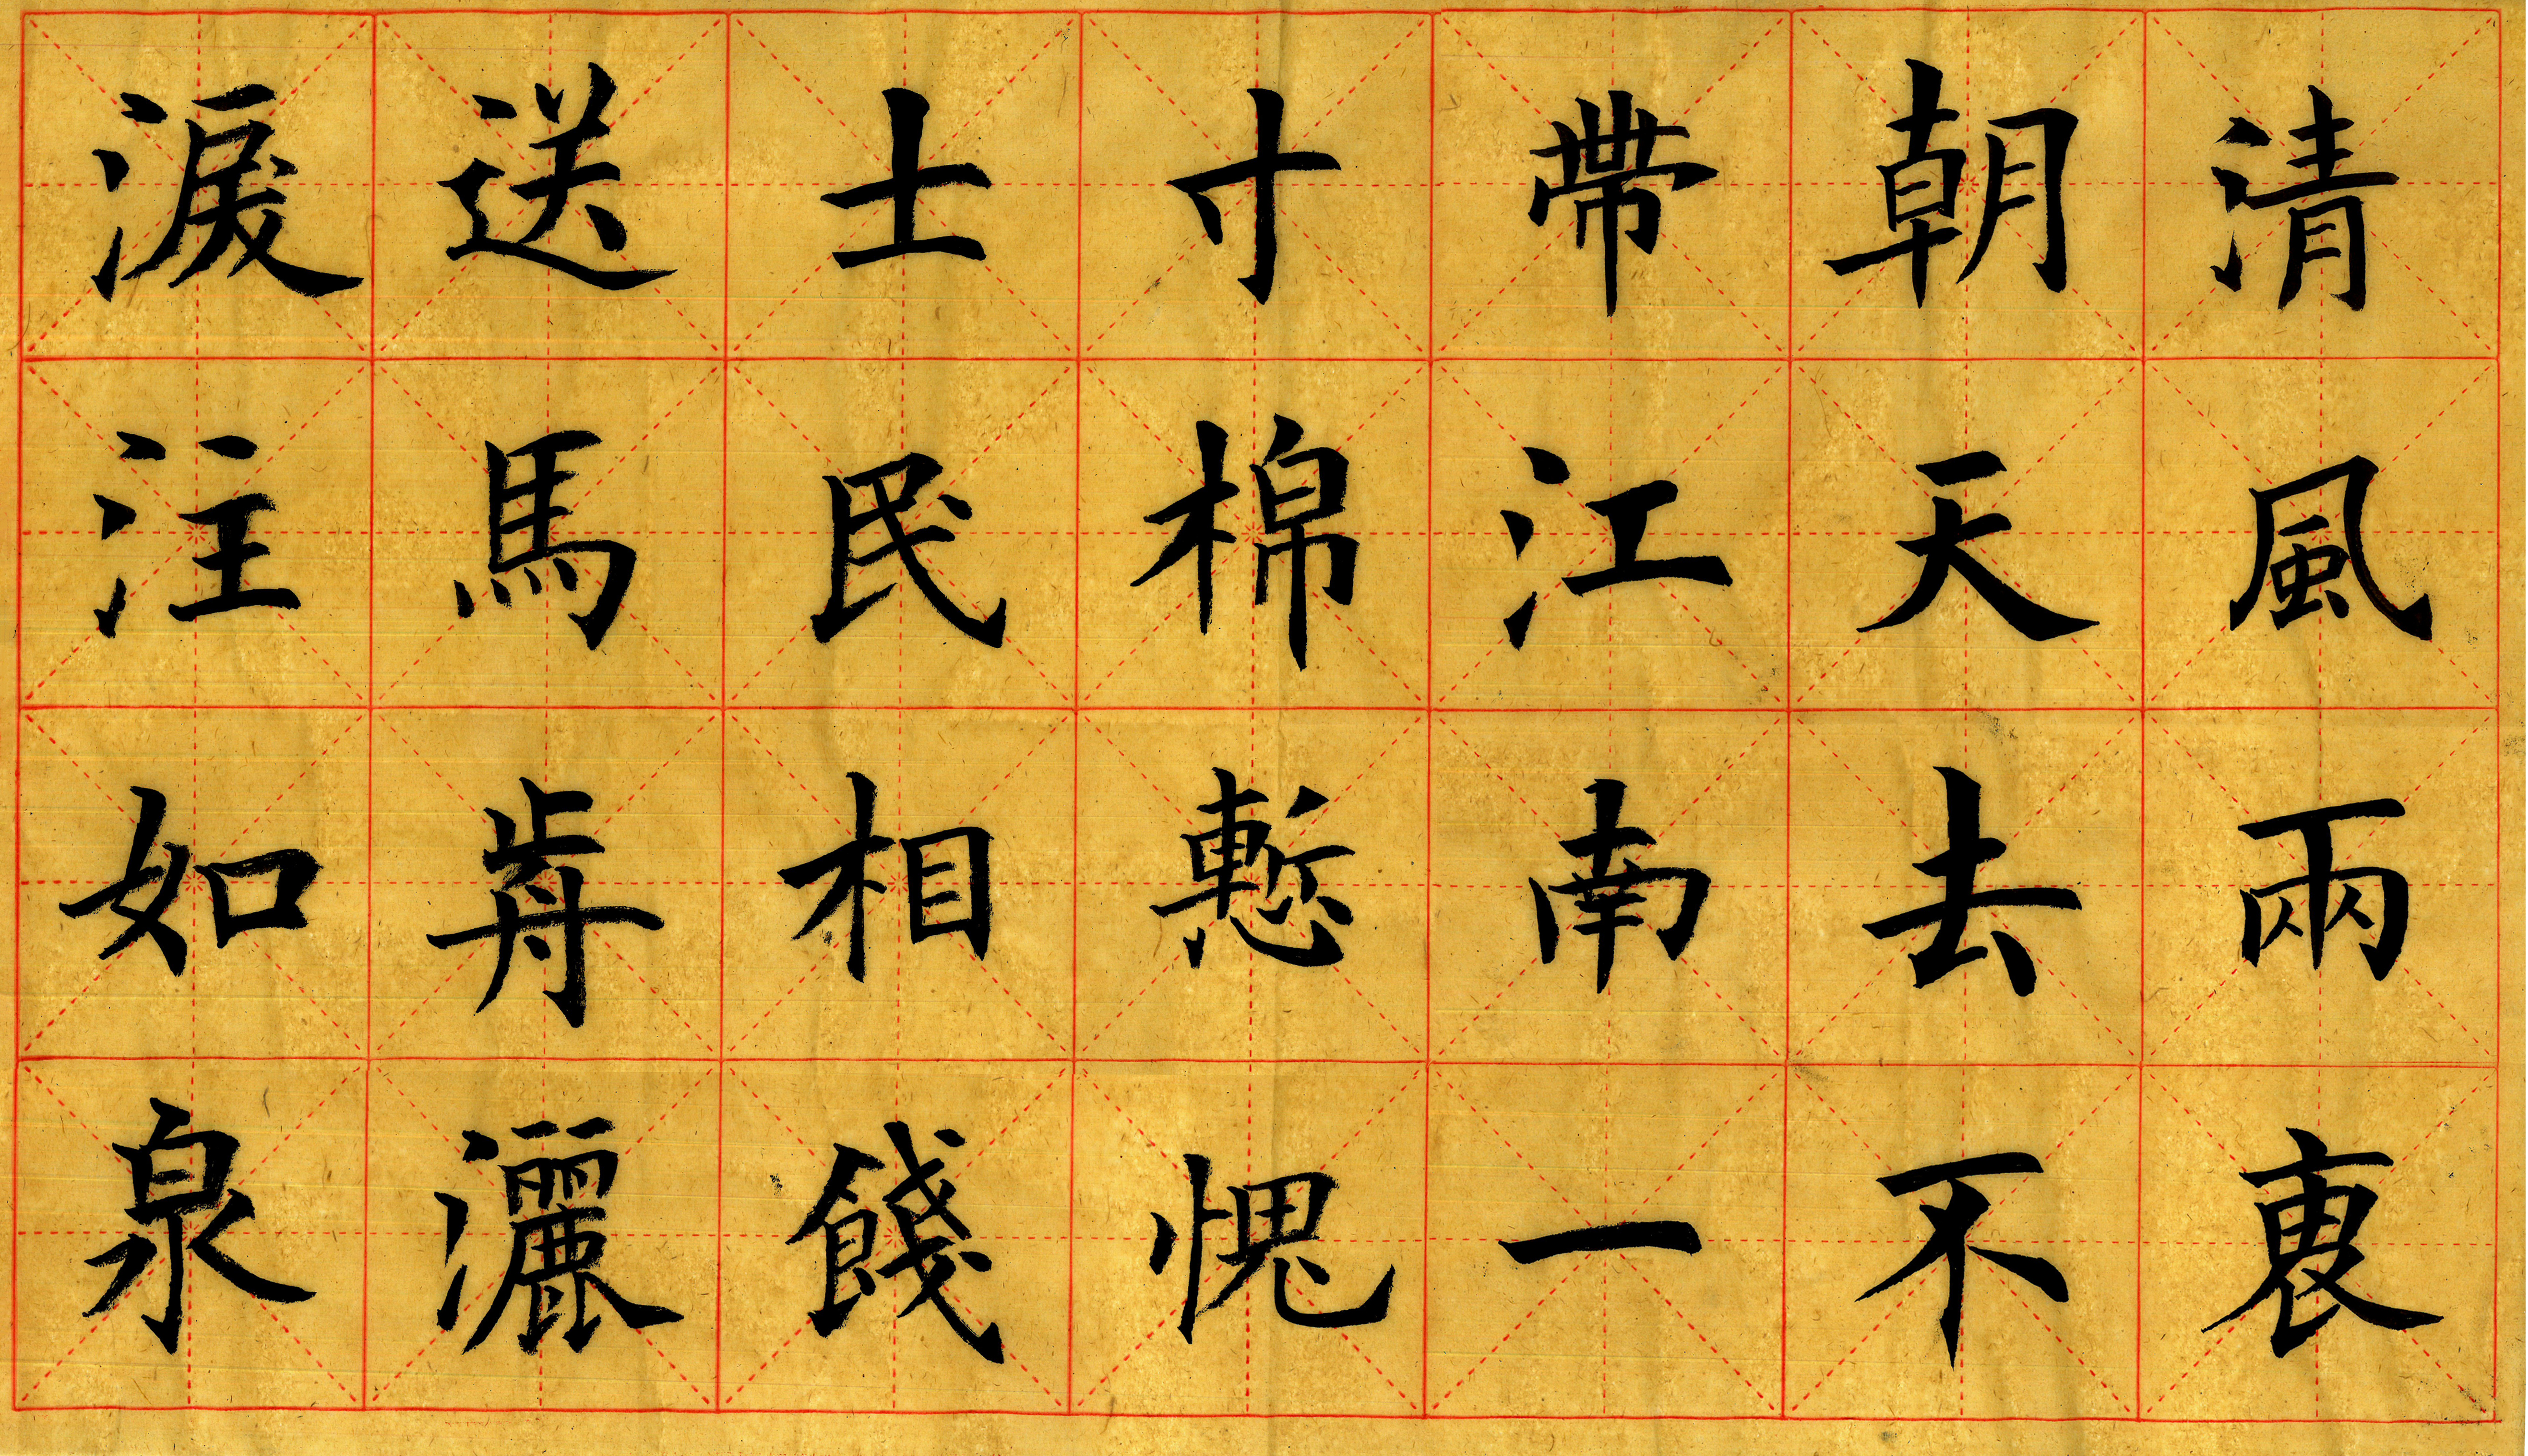 清風兩衷
朝天去不
帶江南一
寸棉慙愧
士民相餞
送馬歬灑
淚注如泉